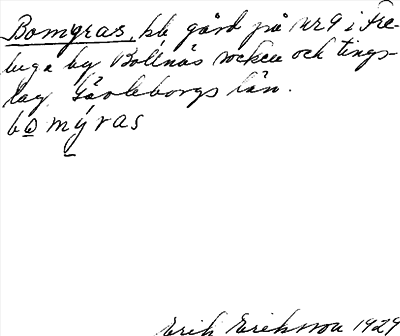 Bomgras, kb gård på nr 9 i Fre-
luga by Bollnäs socken och tings-
lag. Gävleborgs län.
bomýras
Erik Eriksson 1929